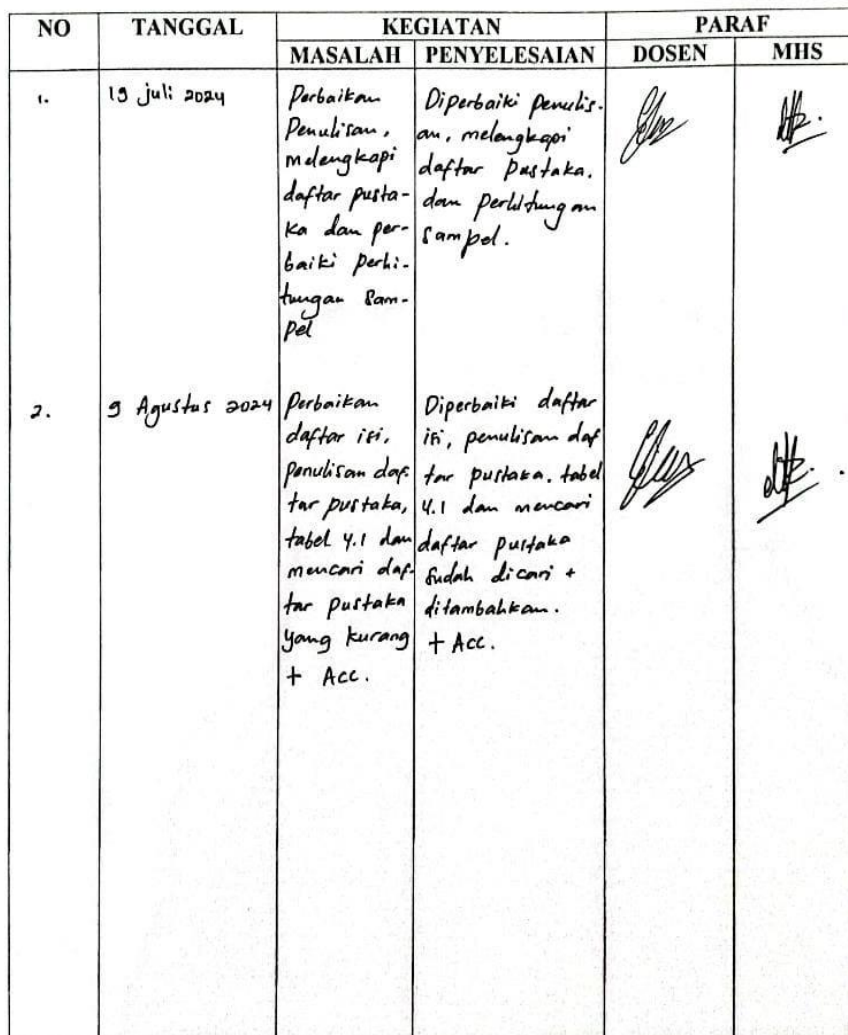 NO TANGGAL KEGIATAN PARAF
MASALAH PENYELESAIAN DOSEN MHS
1. 19 juli 2024
Perbaikan
Penulisan,
melengkapi
daftar pusta-
ka dan per-
baiki perhi-
tungan sam-
pel
Diperbaiki penulis-
an, melengkapi
daftar pustaka.
dan perhitungan
sampel.
2. 9 Agustus 2024
Perbaikan
daftar isi,
penulisan daf-
tar pustaka,
tabel 4.1 dan
mencari daf-
tar pustaka
yang kurang
+ Acc.
Diperbaiki daftar
isi, penulisan daf
tar pustaka. tabel
4.1 dan mencari
daftar pustaka
sudah dicari +
ditambahkan.
+ Acc.